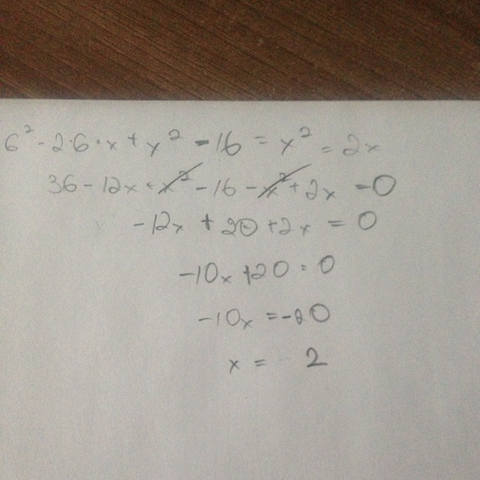 6² - 2·6·x + x² - 16 = x² = 2x
36 - 12x + x² - 16 - x² + 2x = 0
-12x + 20 + 2x = 0
-10x + 20 = 0
-10x = -20
x = 2